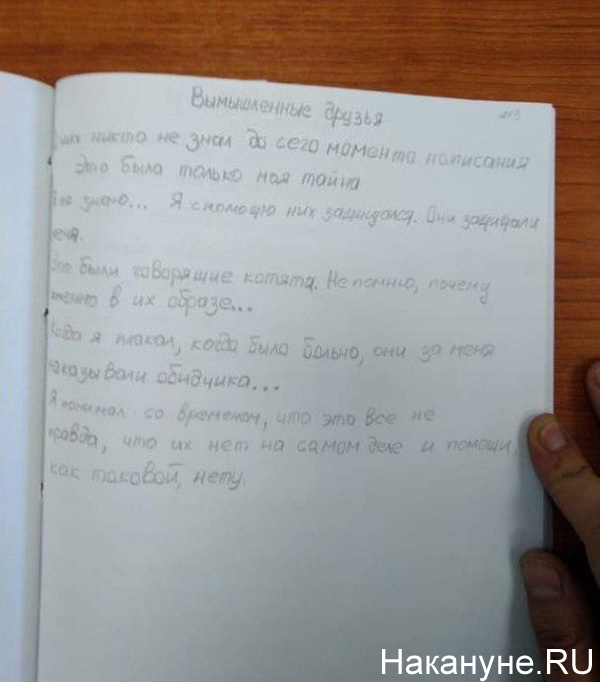 Вымышленные друзья
них никто не знал до сего момента написания
Это была только моя тайна
знаю... Я с помощю них защищался. Они защищали
меня.
Это были говорящие котята. Не помню, почему
именно в их образе...
Когда я плакал, когда было больно, они за меня
наказывали обидчика...
Я понимал со временем, что это все не
правда, что их нет на самом деле и помощи,
как таковой, нету.
Накануне.RU